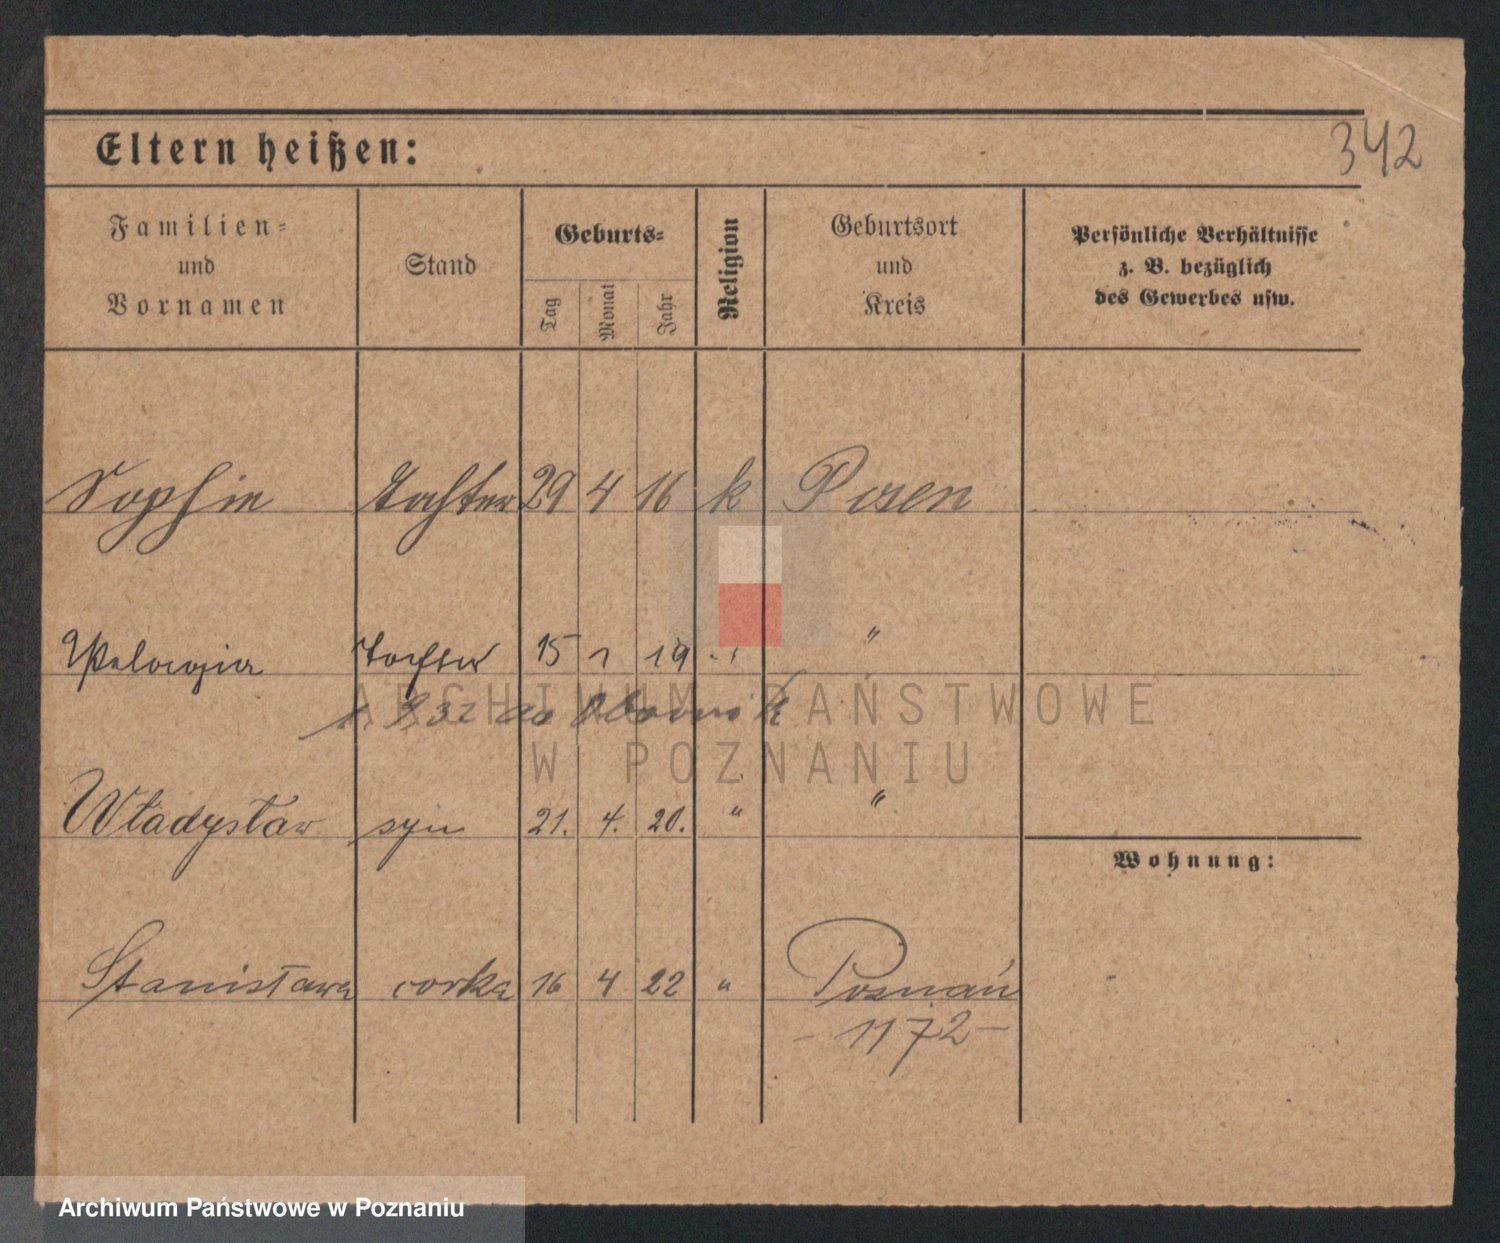 Eltern heißen:
342
Familien= und Vornamen
Stand
Geburts=
Tag
Monat
Jahr
Religion
Geburtsort und Kreis
Persönliche Verhältnisse
z. B. bezüglich
des Gewerbes usw.
Sophie Tochter 29 4 16 k Posen
Pelagia Tochter 15 1 19 "
32 do Obornik
ARCHIWUM PAŃSTWOWE
W POZNANIU
Władysław syn 21. 4. 20. " "
Wohnung:
Stanisława corka 16 4 22 " Poznań
- 1172 -
Archiwum Państwowe w Poznaniu